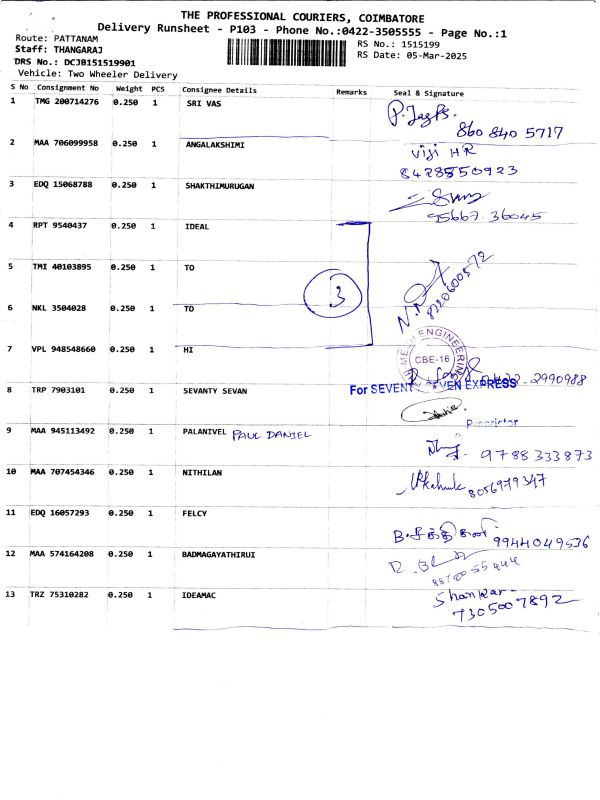 THE PROFESSIONAL COURIERS, COIMBATORE
Delivery Runsheet - P103 - Phone No.:0422-3505555 - Page No.:1
Route: PATTANAM
RS No.: 1515199
Staff: THANGARAJ
RS Date: 05-Mar-2025
DRS No.: DCJB151519901
Vehicle: Two Wheeler Delivery
S No Consignment No Weight PCS Consignee Details Remarks Seal & Signature
1 TMG 200714276 0.250 1 SRI VAS
860 840 5717
2 MAA 706099958 0.250 1 ANGALAKSHMI
Viji HR
8428550923
3 EDQ 15068788 0.250 1 SHAKTHIMURUGAN
95667 36045
4 RPT 9540437 0.250 1 IDEAL
5 TMI 40103895 0.250 1 TO
3
8220600572
6 NKL 3504028 0.250 1 TO
7 VPL 948548660 0.250 1 HI
ENGINEERING
CBE-16
2990988
8 TRP 7903101 0.250 1 SEVANTY SEVAN
For SEVENTY SEVEN EXPRESS
Proprietor
9 MAA 945113492 0.250 1 PALANIVEL PAUL DANIEL
9788333873
10 MAA 707454346 0.250 1 NITHILAN
8056979347
11 EDQ 16057293 0.250 1 FELCY
9944049536
12 MAA 574164208 0.250 1 BADMAGAYATHIRUI
13 TRZ 75310282 0.250 1 IDEAMAC
Shankar
7305007892